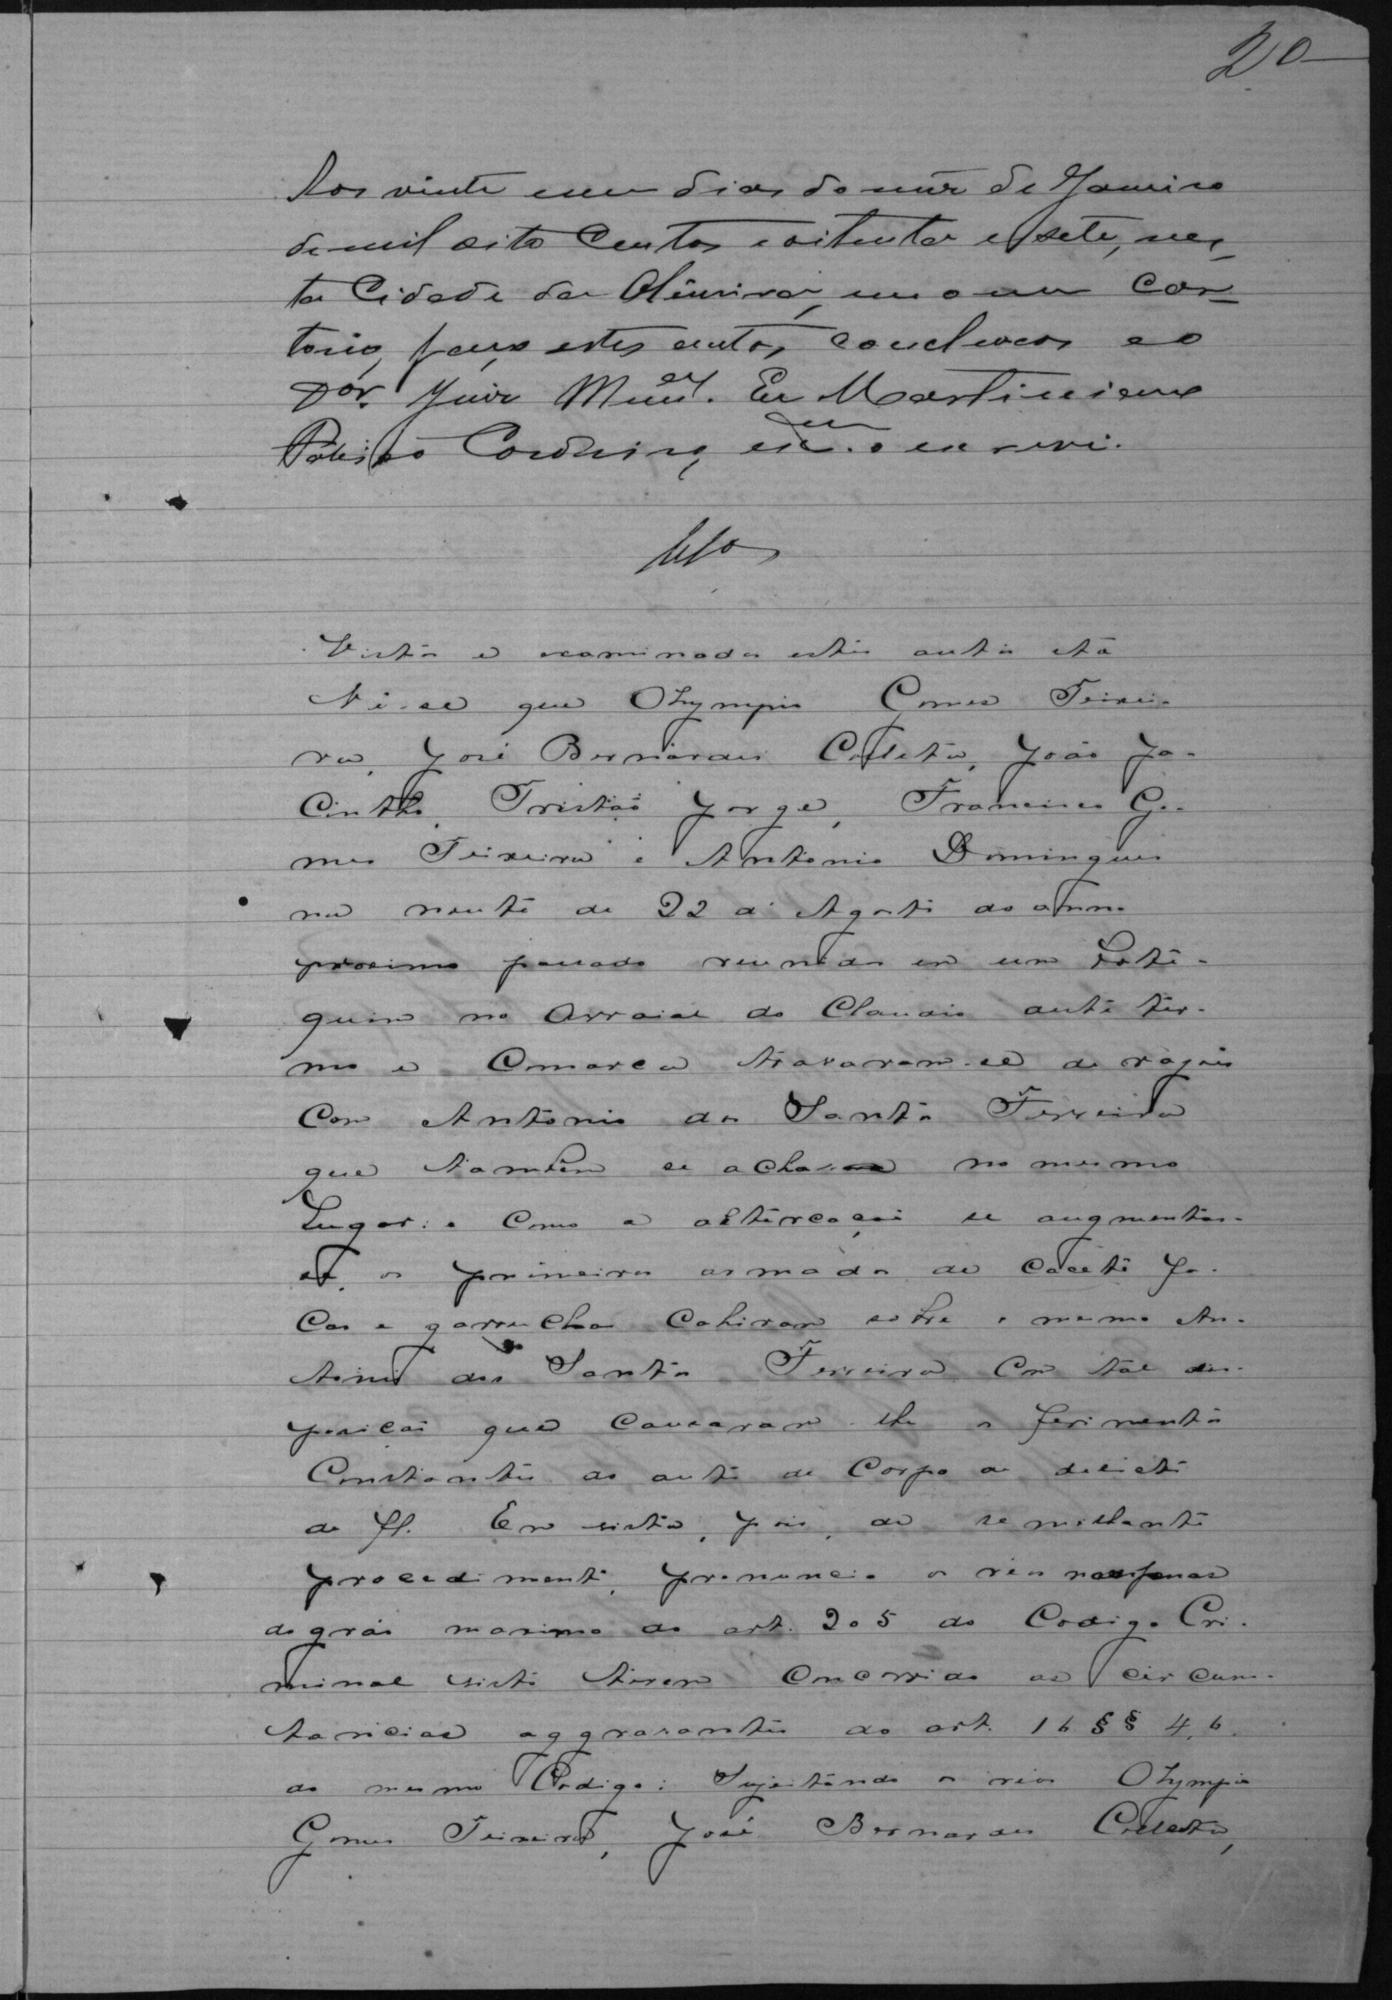 20
Aos vinte um dias do mez de Janeiro
de mil oito centos e oitenta e sete, nes-
ta Cidade da Oliveira, em o meu Car-
torio, faço estes autos conclusos ao
Dor. Juiz Munal. Eu Martiniano
Cordeiro, esam. o escrevi.
Clos
Vistos e examinados estes autos etc
Vê-se que Olympio Gomes Teixei-
ra, José Bernardes Coleto, João Ja-
cintho, Tristão Jorge, Francisco Go-
mes Teixeira e Antonio Domingues
na noute de 22 de Agosto do anno
proximo passado reunidos em um bote-
quim no arraial do Claudio deste ter-
mo e Comarca travaram-se de razões
com Antonio dos Santos Ferreira
que tambem se achava no mesmo
lugar: e como a altercação se augmentas-
se, os primeiros armados de cacete fa-
cas e garrucha cahiram sobre o mesmo An-
tonio dos Santos Ferreira com tal dis-
posição que causaram-lhe os ferimentos
constantes do auto de corpo de delicto
de fl. Em vista, pois, de semilhante
procedimento, pronuncio os reos nas penas
do gráo maximo do art. 205 do Codigo Cri-
minal visto terem concorrido as circums-
tancias aggravantes do art. 16 §§ 4, 6.
do mesmo Codigo: Sujeitando os reos Olympio
Gomes Teixeira, José Bernardes Coleto,